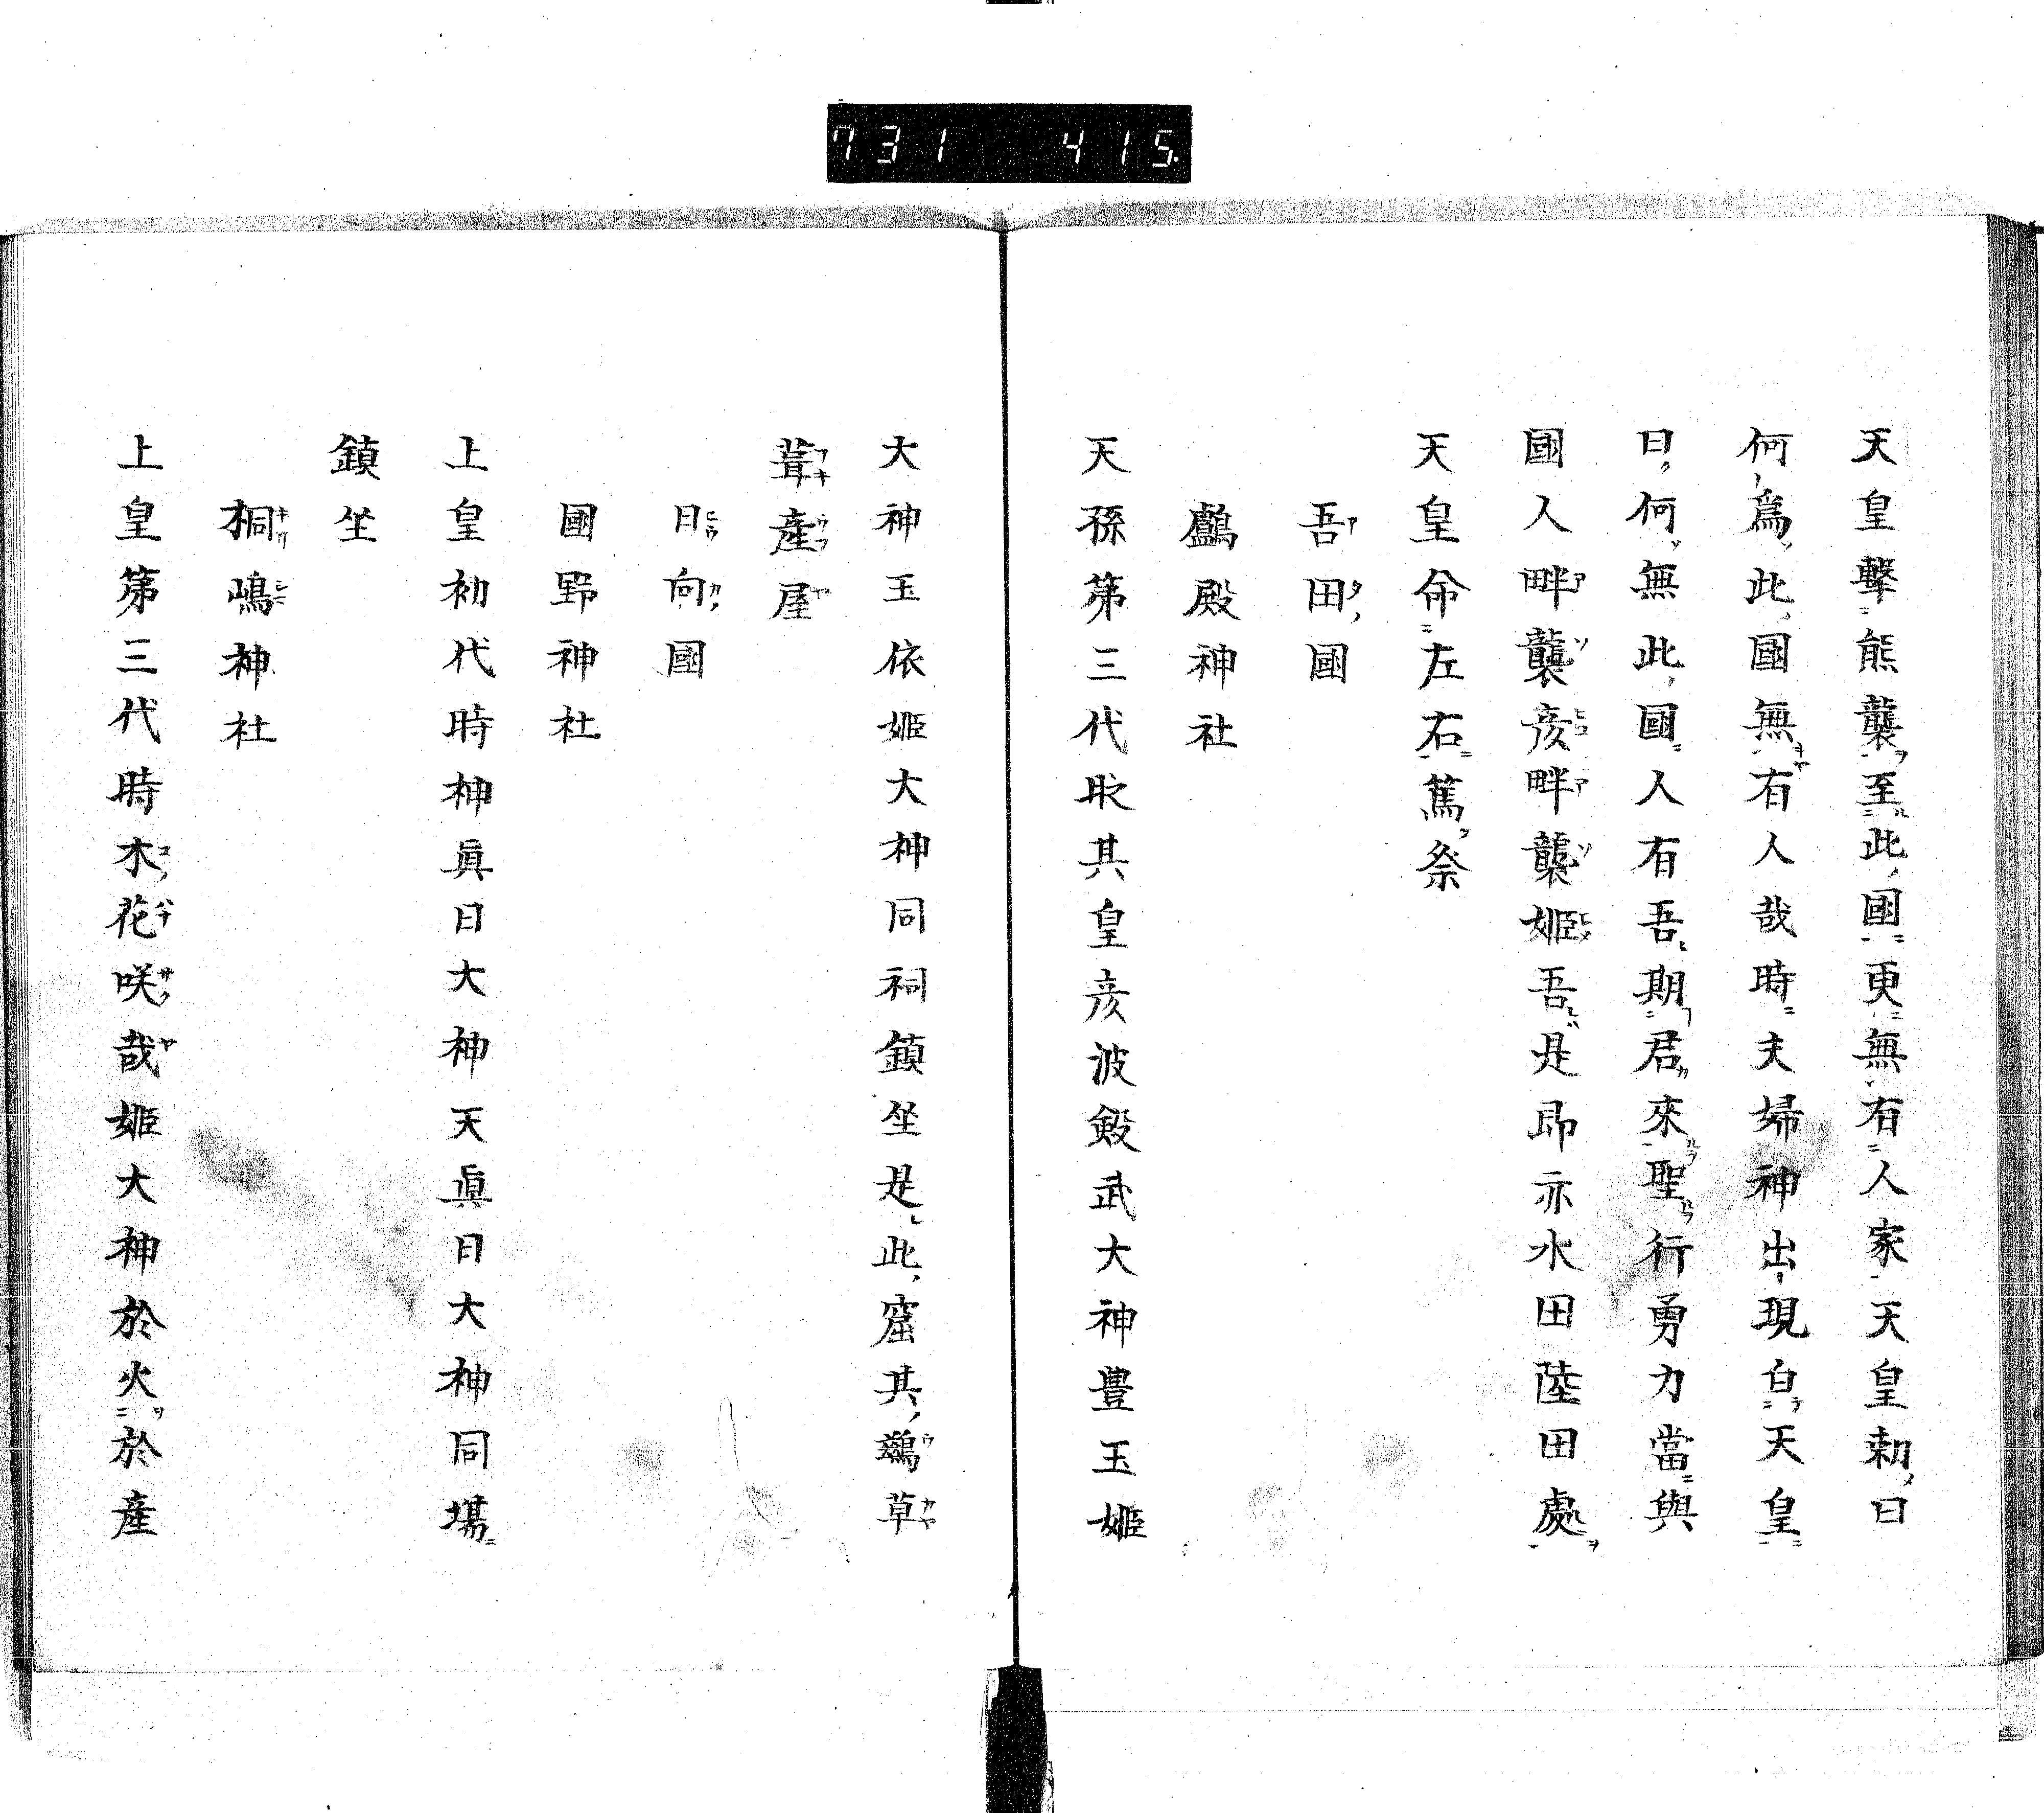 731 415.
天皇擊熊襲至此國更無有人家天皇勅曰
何爲此國無有人哉時夫婦神出現白天皇
曰何無此國人有吾期君來聖行勇力當與
國人畔襲彥畔襲姬吾是即亦水田陸田處
天皇命左右篤祭
吾田國
鸕殿神社
天孫第三代㱕其皇彥波瀲武大神豊玉姬
大神玉依姬大神同祠鎮坐是此窟其鷀草
葺產屋
日向國
國野神社
上皇初代時神眞日大神天眞日大神同場
鎮坐
桐嶋神社
上皇第三代時木花咲哉姬大神於火於產